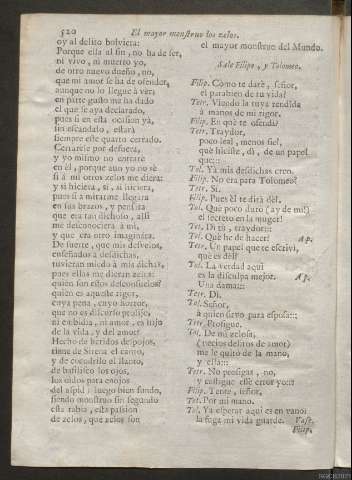 520 El mayor monstruo los zelos.
oy al delito bolviera:
Porque essa al fin, no ha de ser,
ni vivo, ni muerto yo,
de otro nuevo dueño, no,
que mi amor se ha de ofender,
aunque no lo llegue à vèr:
en parte gusto me ha dado
el que se aya declarado,
pues si en esta ocasion ya,
sin escandalo, estarà
siempre este quarto cerrado.
Cerrarèle por defuera,
y yo mismo no entrarè
en èl, porque aun yo no sè
si à mi otros zelos me diera:
y si hiciera, si, si hiciera,
pues si à mirarme llegàra
en sus brazos, y pensàra
que era tan dichoso, alli
me desconociera à mi,
y que era otro imaginàra.
De suerte, que mis desvelos,
enseñados à desdichas,
tuvieran miedo à mis dichas,
pues ellas me dieran zelos:
quien son estos desconsuelos?
quien es aqueste rigor,
cuya pena, cuyo horror,
que no es discurso prolijo,
ni embidia, ni amor, es hijo
de la vida, y del amor?
Hecho de heridos despojos,
tiene de Sirena el canto,
y de cocodrilo el llanto,
de basilisco los ojos,
los oidos para enojos
del aspid; luego bien fundo,
siendo monstruo sin segundo
esta rabia, esta passion
de zelos, que zelos son
el mayor monstruo del Mundo.
Sale Filipo, y Tolomeo.
Filip. Còmo te darè, señor,
el parabien de tu vida?
Tetr. Viendo la tuya rendida
à manos de mi rigor.
Filip. En què te ofendi?
Tetr. Traydor,
poco leal, menos fiel,
què hiciste, di, de un papel
que:::
Tol. Ya mis desdichas creo.
Filip. No era para Tolomeo?
Tetr. Si.
Filip. Pues èl te dirà dèl.
Tol. Què poco durò (ay de mi!)
el secreto en la muger!
Tetr. Di tù, traydor:::
Tol. Què he de hacer? Ap.
Tetr. Un papel que te escrivì,
què es dèl?
Tol. La verdad aqui
es la disculpa mejor. Ap.
Una dama:::
Tetr. Di.
Tol. Señor,
à quien sirvo para esposa:::
Tetr. Prosigue.
Tol. De mi zelosa,
(necios delitos de amor)
me le quitò de la mano,
y ella:::
Tetr. No prosigas, no,
y castigue esse error yo:::
Filip. Tente, señor,
Tol. Por mi mano.
Tol. Ya esperar aqui es en vano:
la fuga mi vida guarde. Vase.
Filip.